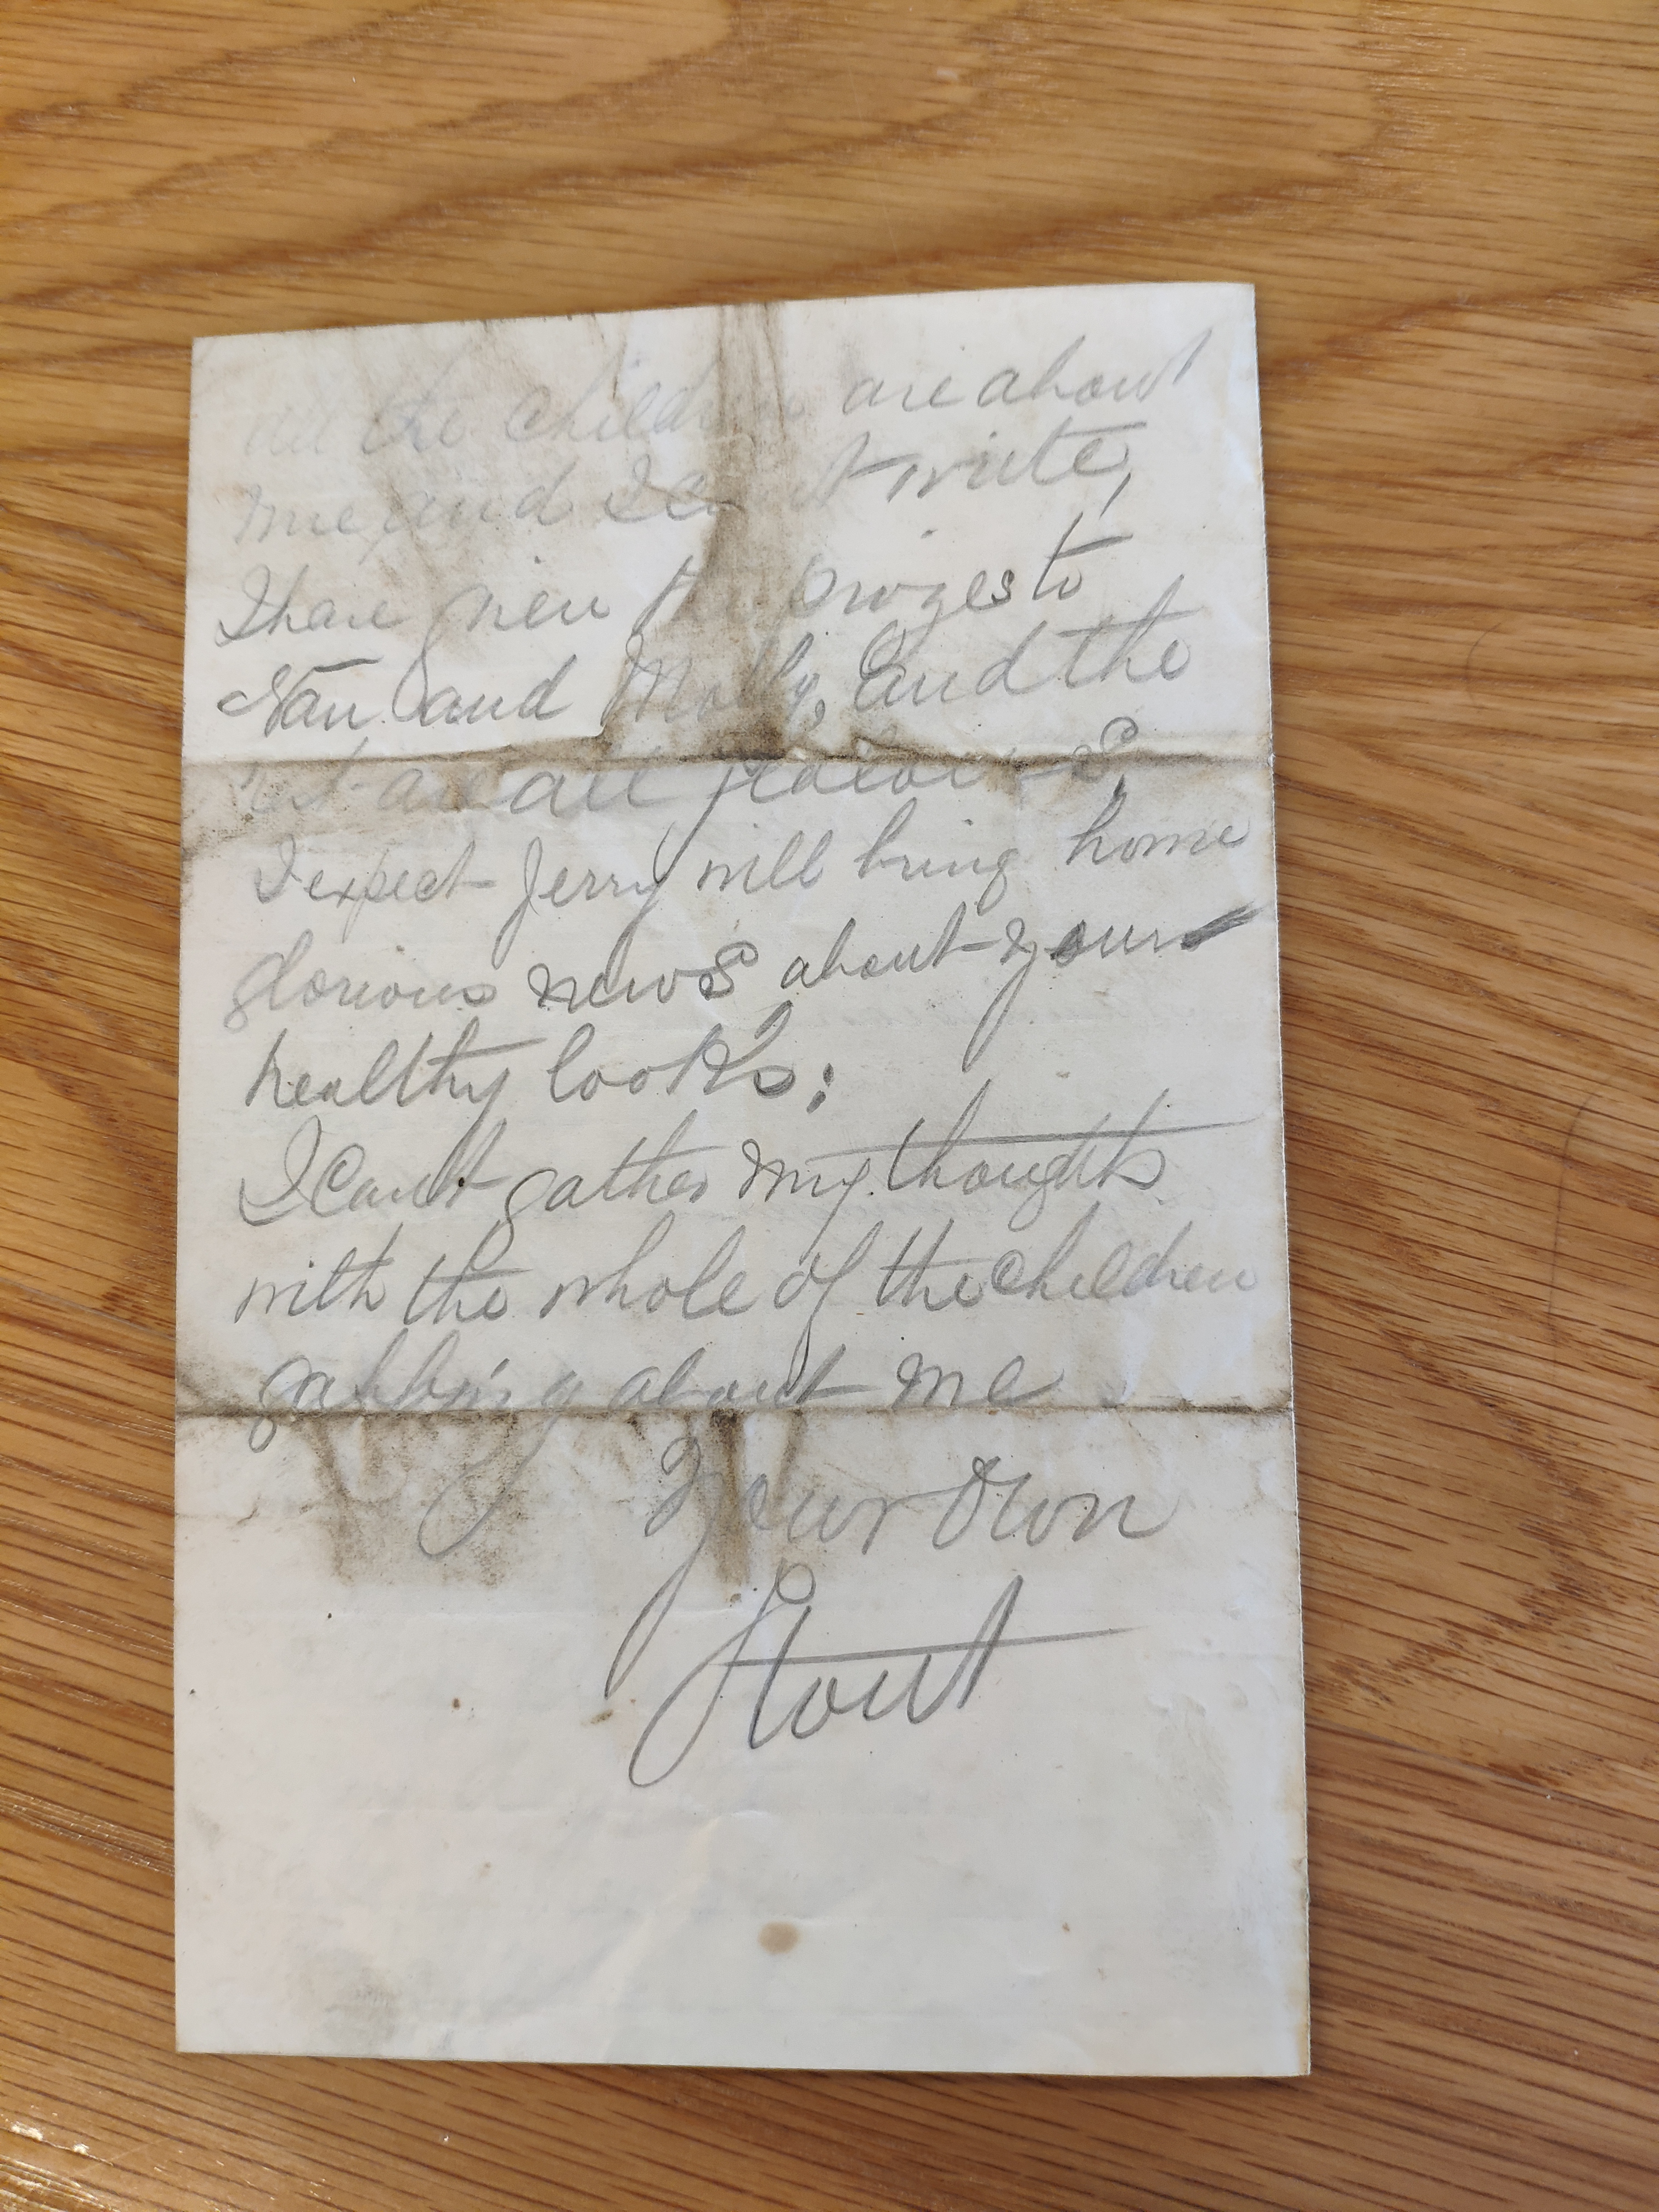 all the children are about
me and I can't write,
I have given the prizes to
Nan and Molly, and the
rest are all jealous,
I expect Jerry will bring home
glorious news about your
healthy looks;
I Can't gather my thoughts
with the whole of the Children
gabbing about me
Your Own
Stout